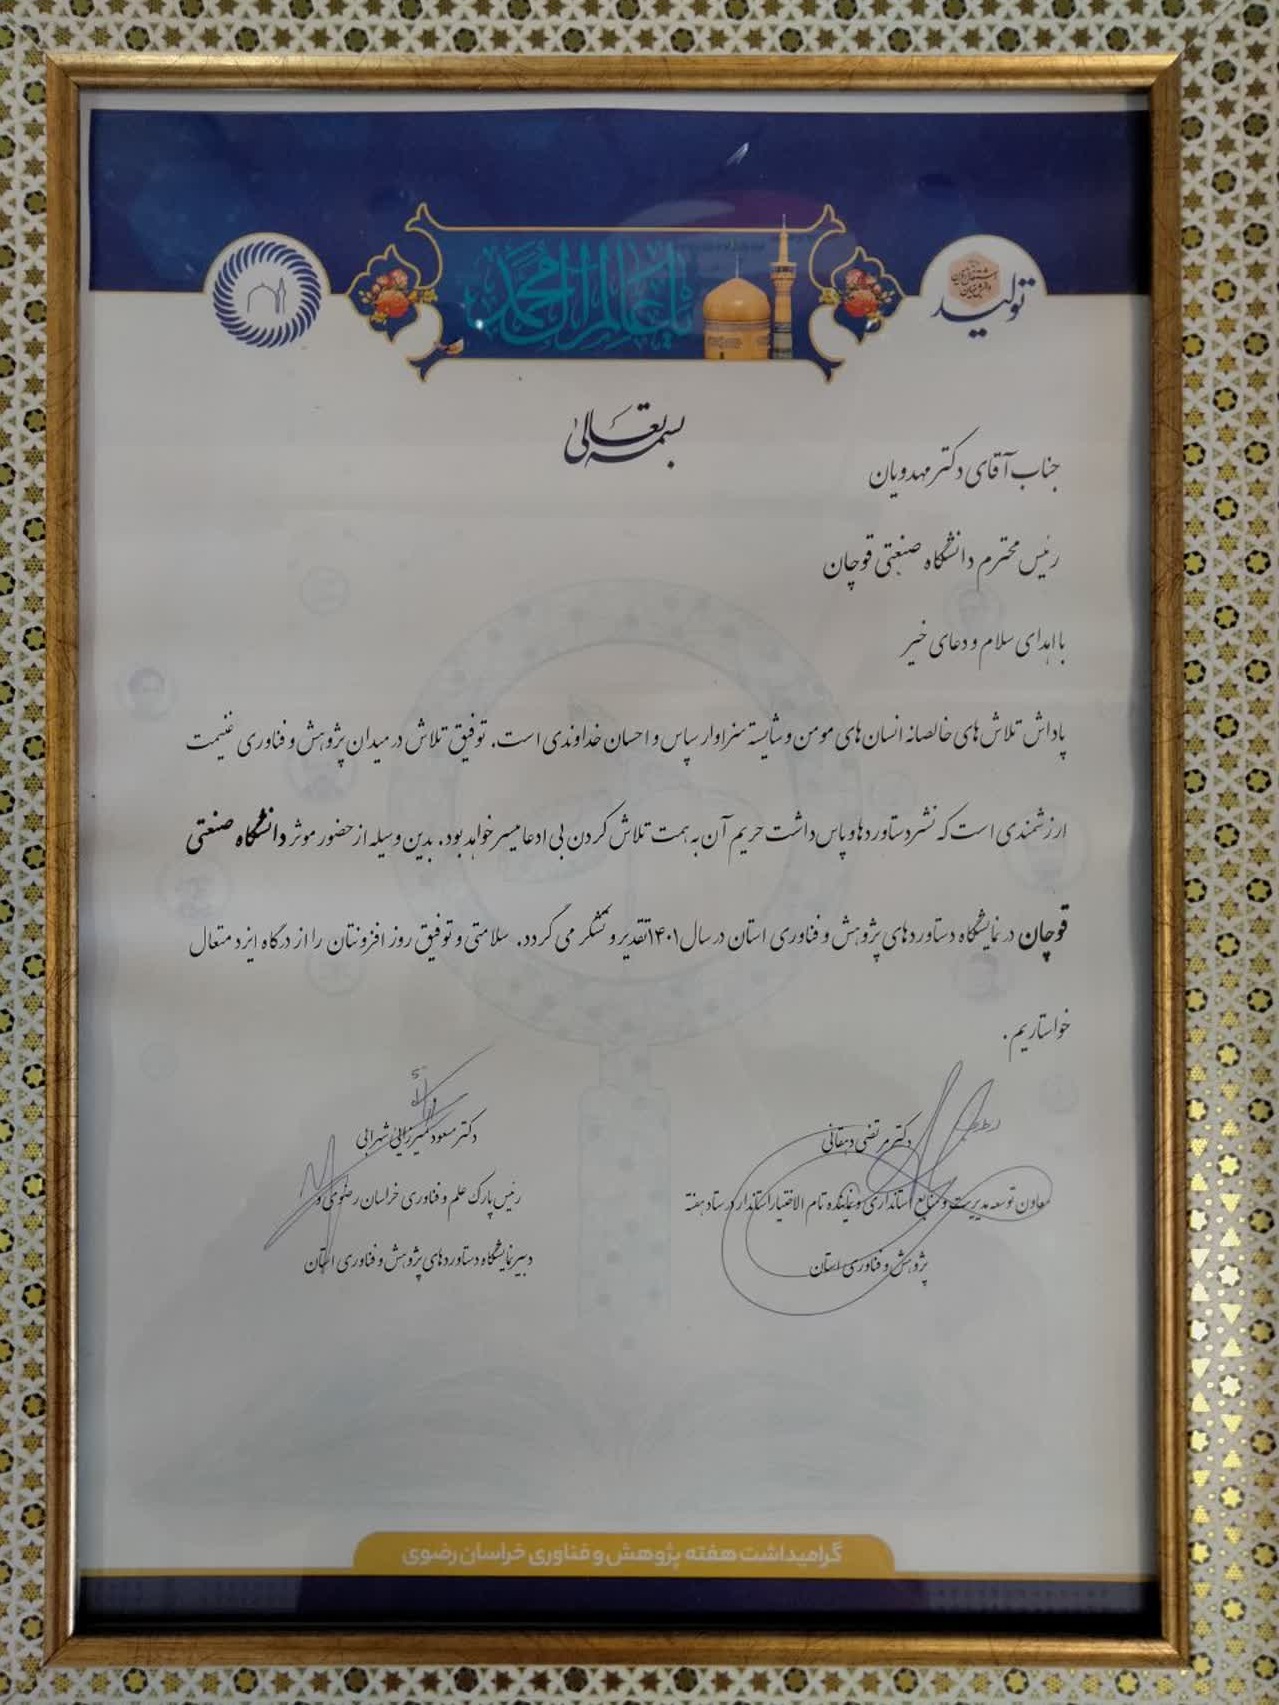 یا عالم آل محمد
تولید
دانش‌بنیان
اشتغال‌آفرین
بسمه تعالی
جناب آقای دکتر مهدویان
رئیس محترم دانشگاه صنعتی قوچان
با اهدای سلام و دعای خیر
پاداش تلاش های خالصانه انسان های مومن و شایسته سزاوار سپاس و احسان خداوندی است. توفیق تلاش در میدان پژوهش و فناوری غنیمت
ارزشمندی است که نشر دستاوردها و پاس داشت حریم آن به همت تلاش کردن بی ادعا میسر خواهد بود. بدین وسیله از حضور موثر دانشگاه صنعتی
قوچان در نمایشگاه دستاوردهای پژوهش و فناوری استان در سال ۱۴۰۱ تقدیر و تشکر می گردد. سلامتی و توفیق روز افزونتان را از درگاه ایزد متعال
خواستاریم.
دکتر مرتضی دهقانی
معاون توسعه مدیریت و منابع استانداری و نماینده تام الاختیار استاندار در ستاد هفته
پژوهش و فناوری استان
دکتر مسعود میرزائی شهرابی
رئیس پارک علم و فناوری خراسان رضوی و
دبیر نمایشگاه دستاوردهای پژوهش و فناوری استان
گرامیداشت هفته پژوهش و فناوری خراسان رضوی